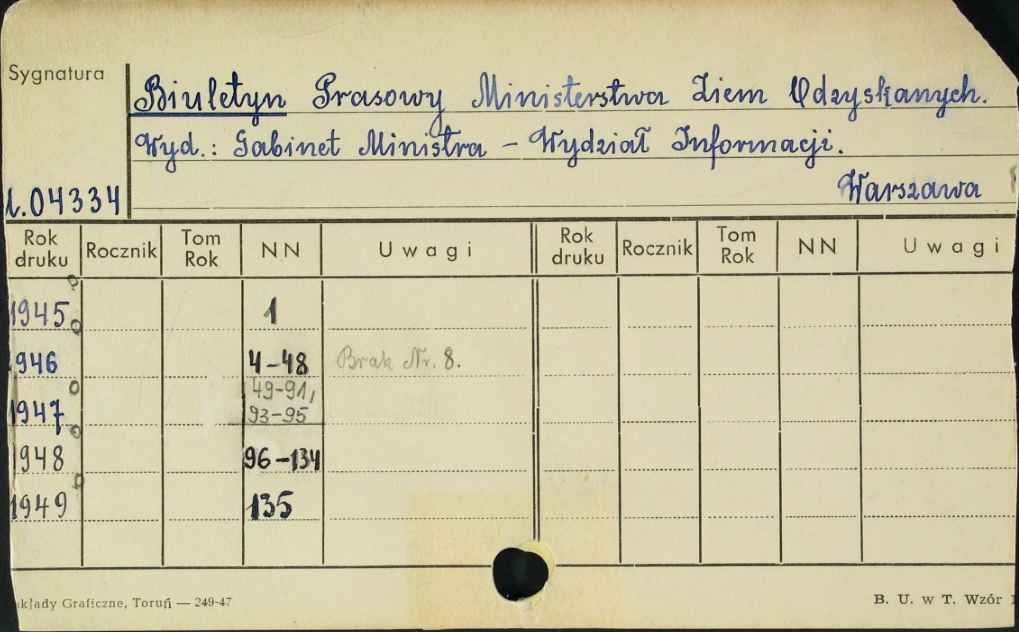 Sygnatura
Biuletyn Prasowy Ministerstwa Ziem Odzyskanych.
Wyd.: Gabinet Ministra – Wydział Informacji.
Warszawa
04334
Rok druku Rocznik Tom Rok NN Uwagi Rok druku Rocznik Tom Rok NN Uwagi
1945 1
1946 4–48 Brak Nr. 8.
1947 49-91, 93-95
1948 96–134
1949 135
kłady Graficzne, Toruń — 249-47
B. U. w T. Wzór